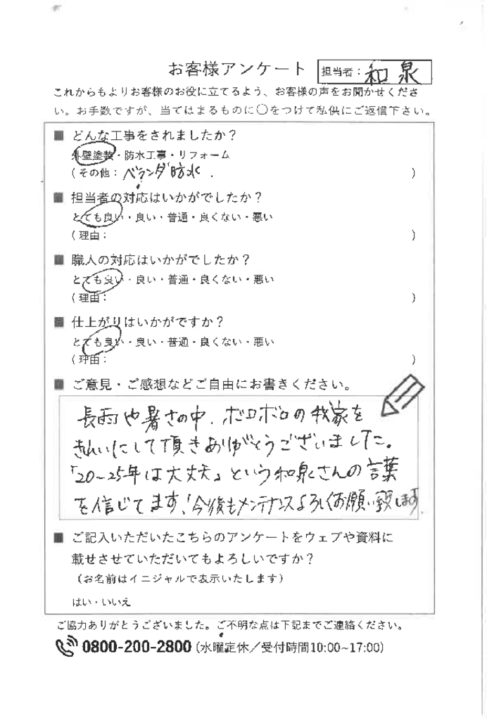 お客様アンケート 担当者: 和泉
これからもよりお客様のお役に立てるよう、お客様の声をお聞かせくださ
い。お手数ですが、当てはまるものに〇をつけて私供にご返信下さい。
■ どんな工事をされましたか?
外壁塗装・防水工事・リフォーム
(その他: ベランダ防水. )
■ 担当者の対応はいかがでしたか?
とても良い・良い・普通・良くない・悪い
(理由: )
■ 職人の対応はいかがでしたか?
とても良い・良い・普通・良くない・悪い
(理由: )
■ 仕上がりはいかがですか?
とても良い・良い・普通・良くない・悪い
(理由: )
■ ご意見・ご感想などご自由にお書きください。
長雨や暑さの中、ボロボロの我家を
きれいにして頂きありがとうございました。
「20~25年は大丈夫」という和泉さんの言葉
を信じてます!今後もメンテナンスよろしくお願い致します.
■ ご記入いただいたこちらのアンケートをウェブや資料に
載せさせていただいてもよろしいですか?
(お名前はイニシャルで表示いたします)
はい・いいえ
ご協力ありがとうございました。ご不明な点は下記までご連絡ください。
0800-200-2800 (水曜定休/受付時間10:00~17:00)